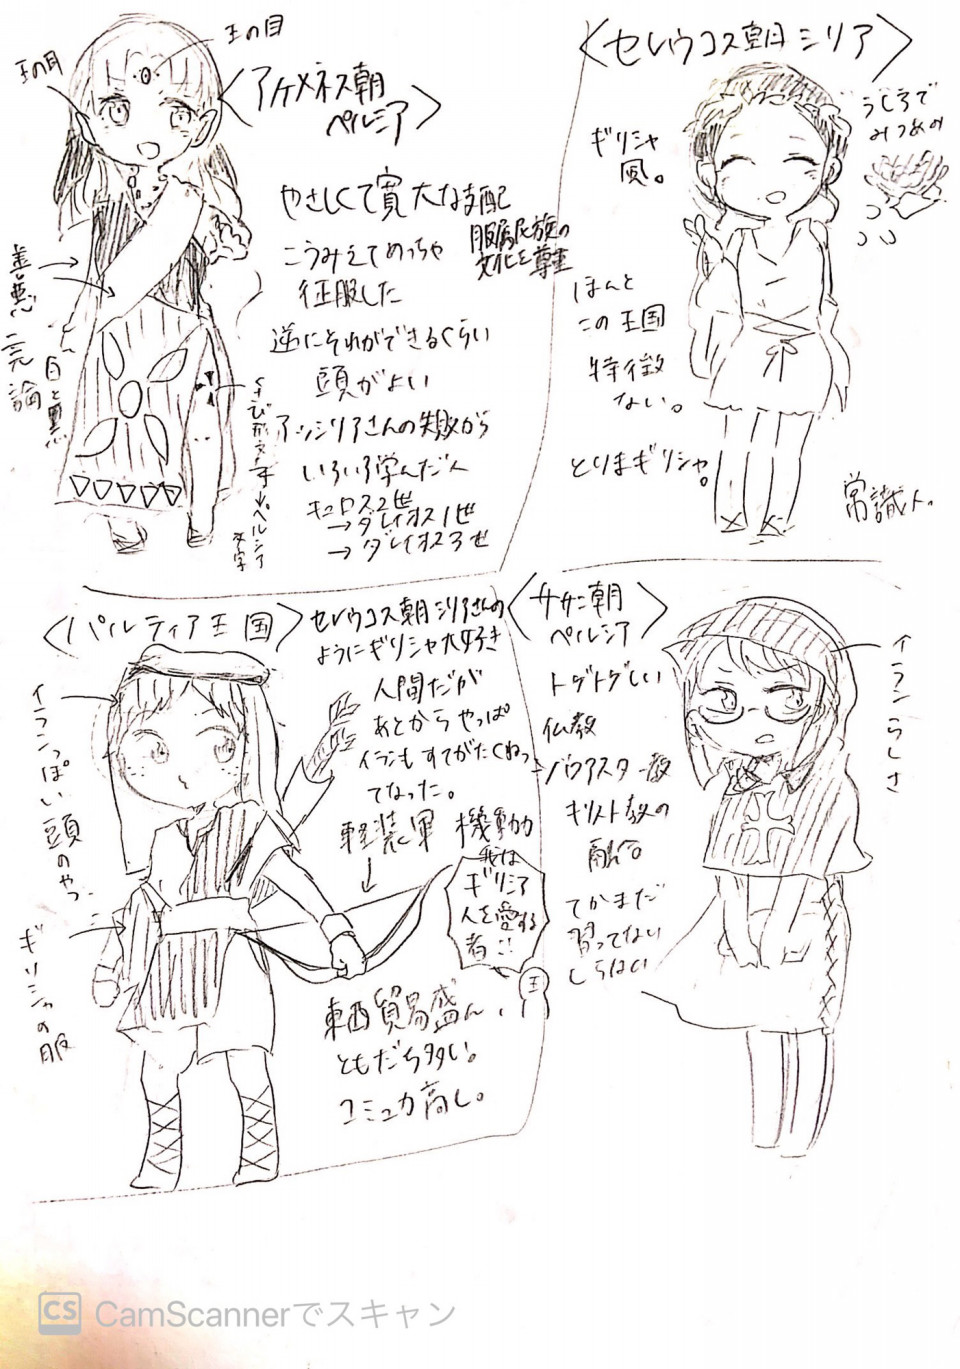 王の目
王の目
〈アケメネス朝
ペルシア〉
やさしくて寛大な支配
服属民族の
文化を尊重
こうみえてめっちゃ
征服した
逆にそれができるくらい
頭がよい
アッシリアさんの失敗から
いろいろ学んだ人
キュロス2世
→ダレイオス1世
→ダレイオス3世
善悪二元論
白と黒
くさび形文字
ペルシア
文字
〈セレウコス朝シリア〉
ギリシャ
風。
うしろで
みつあみ
ほんと
この王国
特徴
ない。
とりまギリシャ。
常識人。
〈パルティア王国〉
セレウコス朝シリアさんの
ようにギリシャ大好き
人間だが
あとからやっぱ
イランもすてがたくねっ
てなった。
軽装軍 機動力
イランっぽい頭のやつ
ギリシャの服
我は
ギリシア
人を愛する
者!!
王
東西貿易盛ん。
ともだち多い。
コミュ力高し。
〈ササン朝
ペルシア〉
トゲトゲしい
仏教
ゾロアスター教
キリスト教の
融合。
てかまだ
習ってない
しらない
イランらしさ
CS CamScannerでスキャン